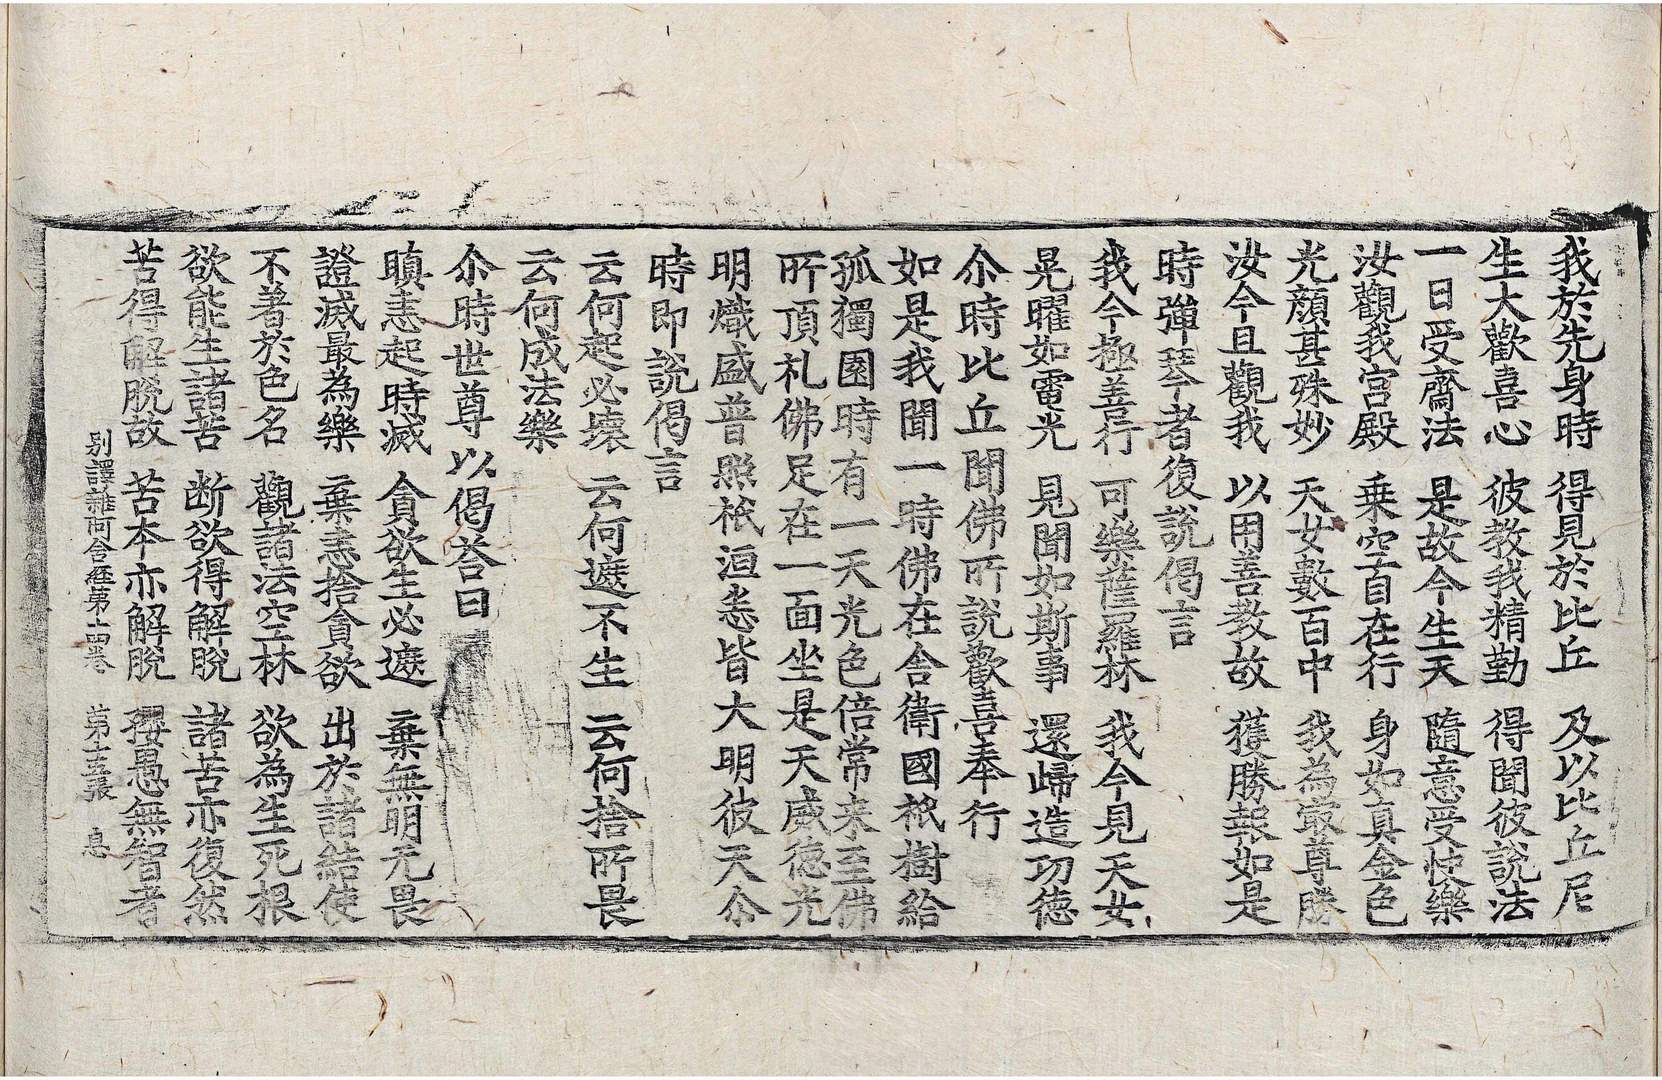 我於先身時　得見於比丘　及以比丘尼
生大歡喜心　彼教我精勤　得聞彼說法
一日受齋法　是故今生天　隨意受快樂
汝觀我宮殿　乗空自在行　身如真金色
光顔甚殊妙　天女數百中　我為㝡尊勝
汝今且觀我　以用善教故　獲勝報如是
時彈琴者復說偈言
我今極善行　可樂薩羅林　我今見天女
晃曜如電光　見聞如斯事　還歸造功徳
尒時比丘聞佛所說歡喜奉行
如是我聞一時佛在舎衛國祇樹給
孤獨園時有一天光色倍常来至佛
所頂礼佛足在一面坐是天威徳光
明熾盛普照祇洹悉皆大明彼天尒
時即說偈言
云何起必壞　云何遮不生　云何捨所畏
云何成法樂
尒時世尊以偈荅曰
瞋恚起時滅　貪欲生必遮　棄無明无畏
證滅最為樂　棄恚捨貪欲　出於諸結使
不著於色名　觀諸法空林　欲為生死根
欲能生諸苦　断欲得解脫　諸苦亦復然
苦得解脫故　苦本亦解脫　嬰愚無智者
别譯雜阿含經第十四卷　第十三張　息